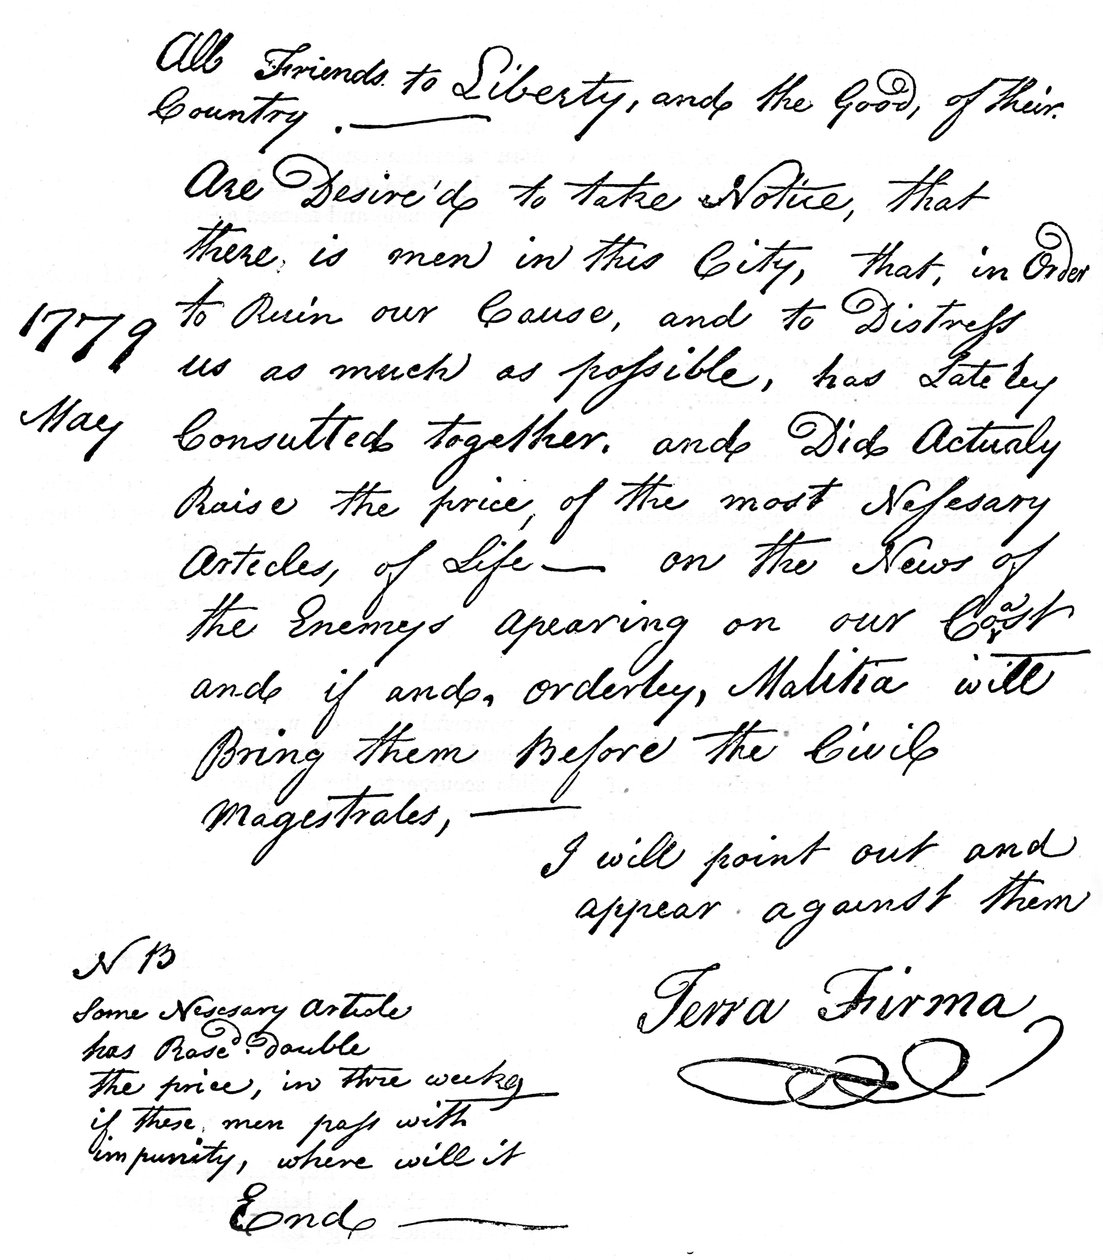 All Friends to Liberty, and the Good, of their
Country.
Are Desire'd to take Notice, that
there, is men in this City, that, in Order
to Ruin our Cause, and to Distreſs
us as much as poſsible, has Lateley
Consulted together. and Did Actualy
Raise the price, of the most Neſesary
Articles, of Life — on the News of
the Enemeys apearing on our Coast
and if and, orderley, Malitia will
Bring them Before the Civil
Magestrates, —
I will point out and
appear against them
Terra Firma
1779
May
N B
Some Nesesary Article
has Rase'd double
the price, in thre weeks
if these, men paſs with
impunity, where will it
End —